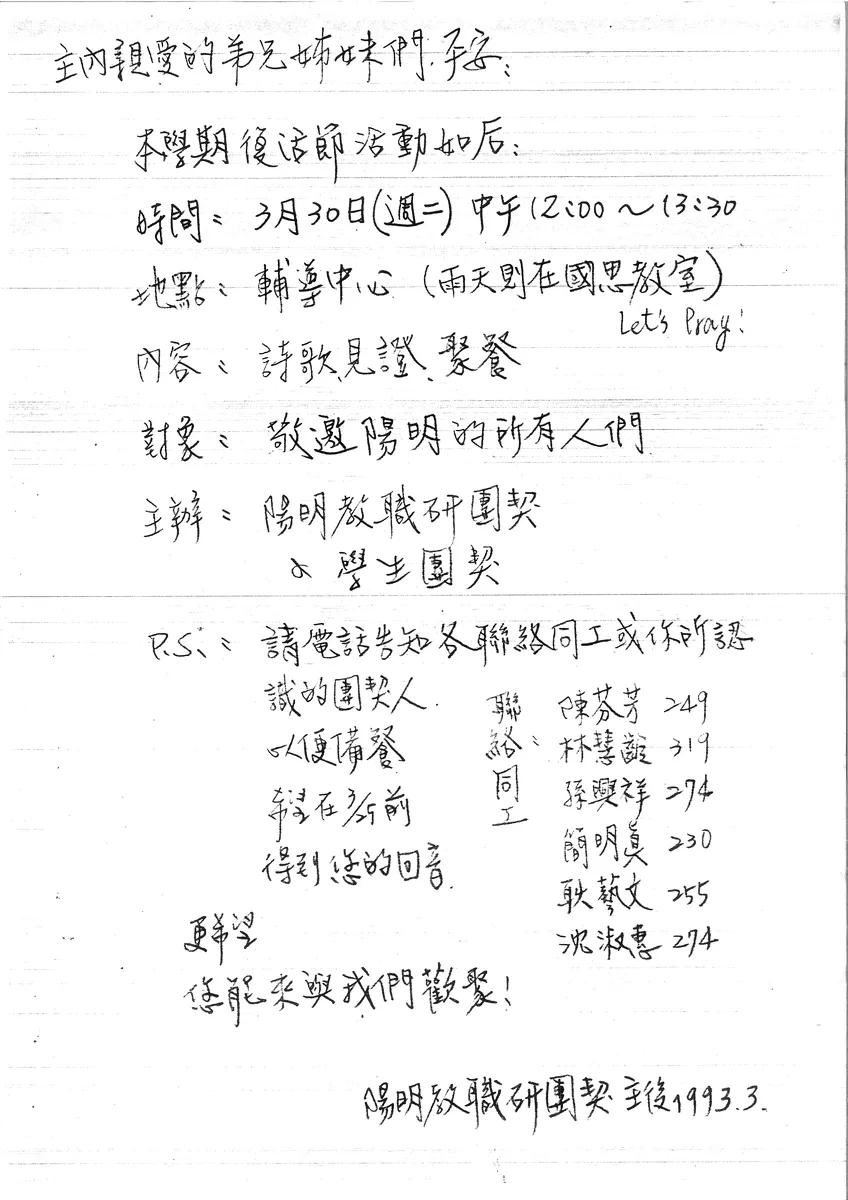 主內親愛的弟兄姊妹們.平安:
本學期復活節活動如后:
時間: 3月30日(週二) 中午12:00～13:30
地點: 輔導中心 (雨天則在國思教室)
Let's Pray!
內容: 詩歌、見證、聚餐
對象: 敬邀陽明的所有人們
主辦: 陽明教職研團契
& 學生團契
P.S.: 請電話告知各聯絡同工或你所認
識的團契人.
以便備餐
希望在3/25前
得到您的回音.
聯絡同工:
陳芬芳 249
林慧 319
孫興祥 274
簡明真 230
耿藝文 255
沈淑惠 274
更希望
您能來與我們歡聚!
陽明教職研團契 主後1993.3.